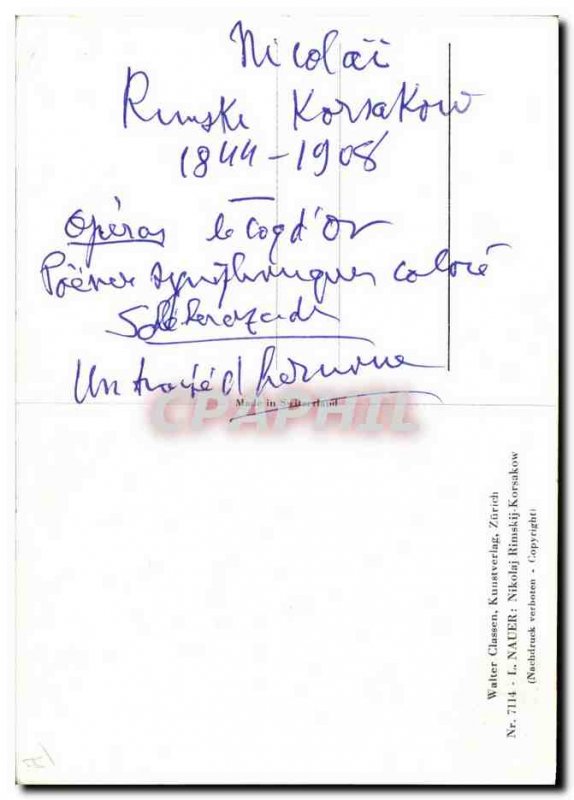 Nicolaï
Rimski Korsakow
1844-1908
Opéras le Coq d'Or
Poèmes symphoniques coloré
Schéhérazade
Un traité d harmonie
Made in Switzerland
CPAPHIL
Walter Classen, Kunstverlag, Zürich
Nr. 7114 - L. NAUER: Nikolaj Rimskij-Korsakow
(Nachdruck verboten - Copyright)